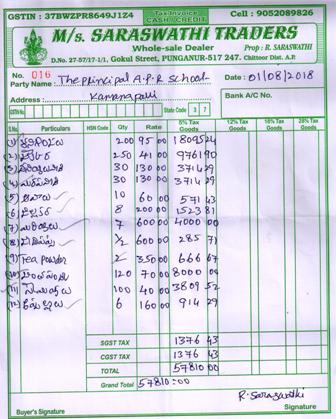 GSTIN : 37BWZPR8649J1Z4 Tax Invoice CASH / CREDIT Cell : 9052089826
M/s. SARASWATHI TRADERS
Whole-sale Dealer Prop : R. SARASWATHI
D.No. 27-57/17-1/1, Gokul Street, PUNGANUR-517 247. Chittoor Dist. A.P.
No. 016 Date : 01/08/2018
Party Name : The principal A.P.R School
Address : Kamanapalli Bank A/C No.
GSTIN No. State Code 3 7
S.No. Particulars HSN Code Qty Rate 5% Tax Goods 12% Tax Goods 18% Tax Goods 28% Tax Goods
(1) 200 95 00 18095 24
(2) 250 41 00 9761 90
(3) 30 130 00 3714 29
(4) 30 130 00 3714 29
(5) 10 60 00 571 43
(6) 8 200 00 1523 81
(7) 7 600 00 4000 00
(8) 1/2 600 00 285 71
(9) Tea powder 2 350 00 666 67
(10) 120 70 00 8000 00
(11) 100 40 00 3809 52
(12) 6 160 00 914 29
SGST TAX 1376 43
CGST TAX 1376 43
TOTAL 57810 00
Grand Total 57810=00
R. Saraswathi
Buyer's Signature Signature